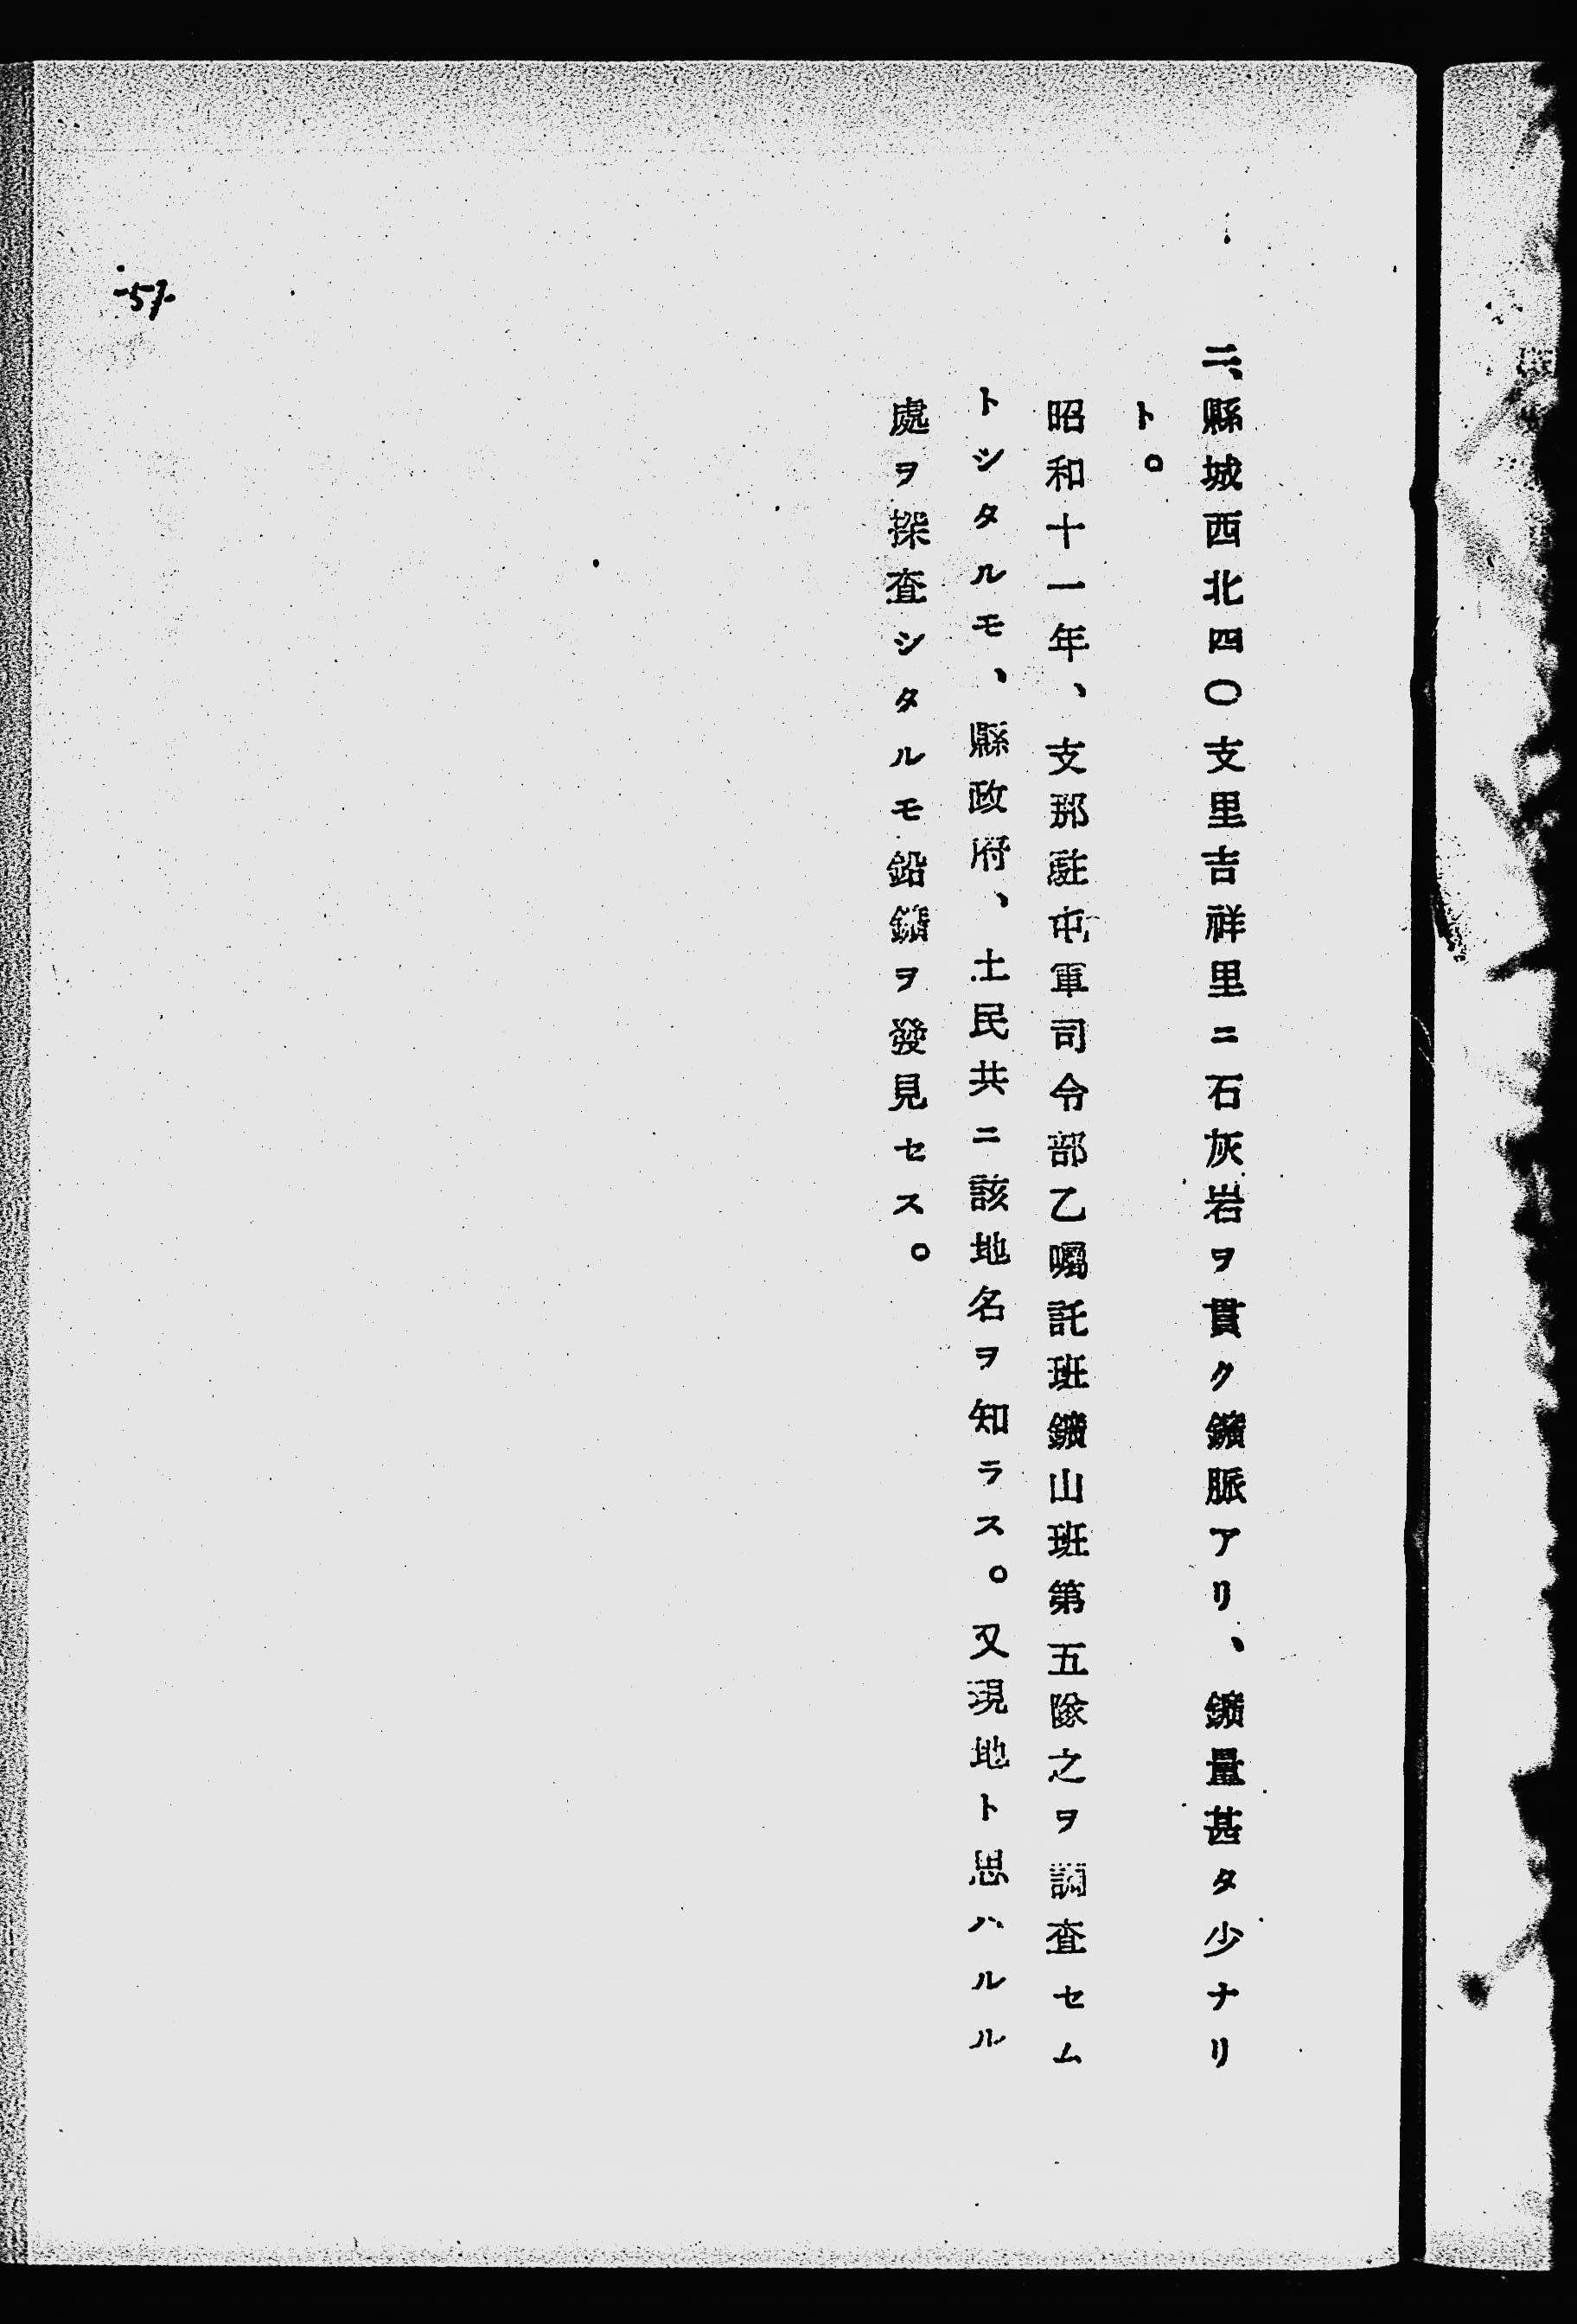 二、縣城西北四〇支里吉祥里ニ石灰岩ヲ貫ク鑛脈アリ、鑛量甚タ少ナリ
ト。
昭和十一年、支那駐屯軍司令部乙囑託班鑛山班第五隊之ヲ調査セム
トシタルモ、縣政府、土民共ニ該地名ヲ知ラス。又現地ト思ハルル
處ヲ探査シタルモ鉛鑛ヲ發見セス。
-57-